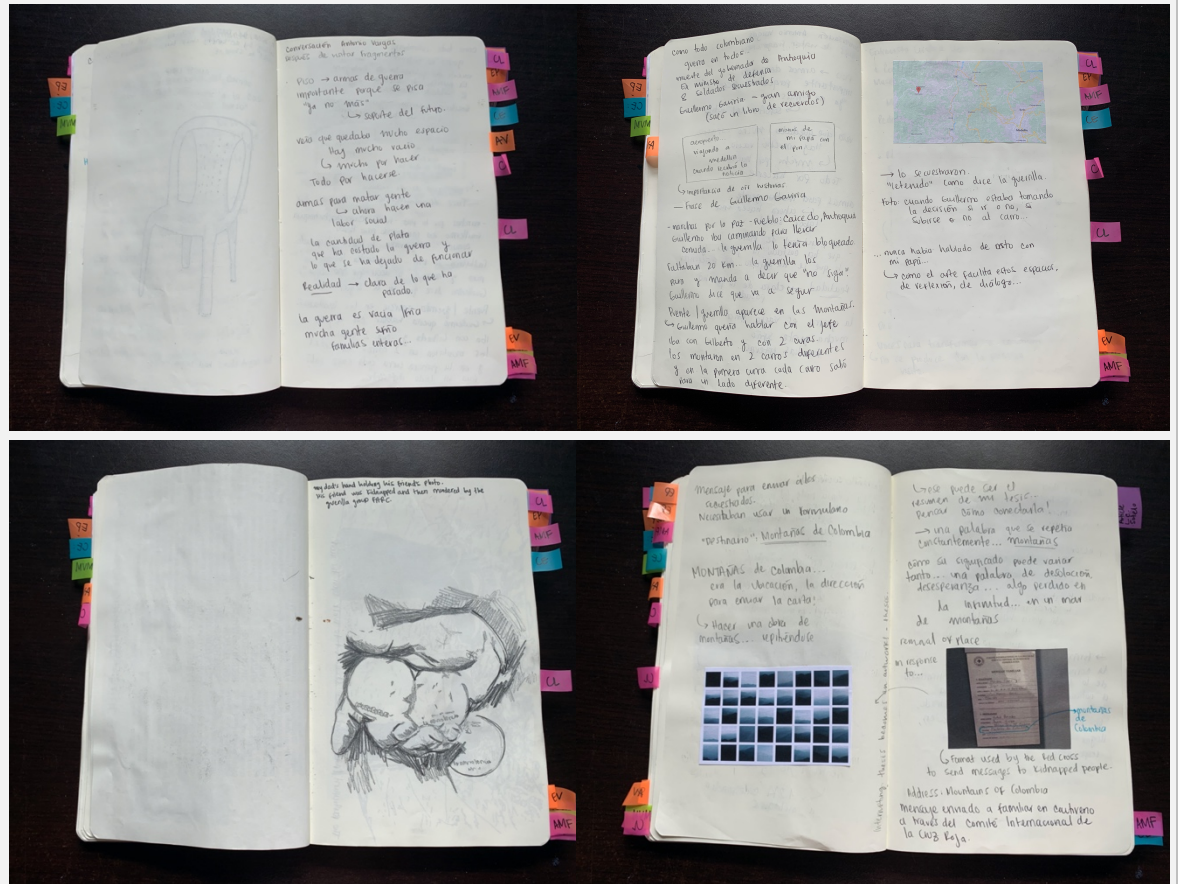 Conversación Antonio Vargas
después de visitar Fragmentos
Piso → armas de guerra
importante porque se pisa
"ya no más"
↳ soporte del futuro.
veía que quedaba mucho espacio
Hay mucho vacío
↳ mucho por hacer
Todo por hacerse
armas para matar gente
↳ ahora hacen una
labor social
la cantidad de plata
que ha costado la guerra y
lo que se ha dejado de funcionar
Realidad → clara de lo que ha
pasado.
la guerra es vacía
mucha gente sufrió
familias enteras...
CL
AMF
AV
CL
EV
AMF
92
JJ
MVM
como todo colombiano
guerra en todos...
muerte del gobernador de Antioquia
Ex ministro de defensa
8 soldados secuestrados
Guillermo Gaviria - gran amigo
(sacó un libro de recuerdos)
aeropuerto
viajando a
medellín
cuando recibió la
noticia
manos de
mi papá con
el pin
↳ importancia de
— Frase de Guillermo Gaviria
- marchas por la paz - Pueblo: Caicedo, Antioquia
Guillermo iba caminando para llevar
comida... la guerrilla lo tenía bloqueado
Faltaban 20 km... la guerrilla los
para y manda a decir que "no siga".
Guillermo dice que va a seguir
Puente / guerrilla aparece en las montañas.
↳ Guillermo quería hablar con el jefe
iba con Gilberto y con 2 curas...
los montaron en 2 carros diferentes
y en la primera curva cada carro salió
para un lado diferente.
→ lo secuestraron.
"retenido" como dice la guerrilla.
Foto cuando Guillermo estaba tomando
la decisión si ir o no, si
subirse o no al carro...
... nunca había hablado de esto con
mi papá...
↳ como el arte facilita estos espacios,
de reflexión, de diálogo...
92
JJ
MVM
CL
AMF
CL
EV
AMF
my dad's hand holding his friend's photo.
his friend was kidnapped and then murdered by the
guerrilla group FARC.
92
JJ
MVM
CL
AMF
CL
EV
AMF
Mensaje para enviar a los
secuestrados.
Necesitaban usar un formulario
"Destinatario": Montañas de Colombia
MONTAÑAS de Colombia...
era la ubicación, la dirección
para enviar la carta!
↳ Hacer una obra de
montañas... repitiéndose
↳ ese puede ser el
resumen de mi tesis...
pensar cómo conectarla!
→ una palabra que se repetía
constantemente... montañas
cómo su significado puede variar
tanto... una palabra de desolación,
desesperanza... algo perdido en
la infinitud... en un mar
de montañas
removal of place
in response
to...
montañas
de
Colombia
↳ Format used by the Red Cross
to send messages to kidnapped people.
Address: Mountains of Colombia
mensaje enviado a familiar en cautiverio
a través del Comité Internacional de
la Cruz Roja.
AMF